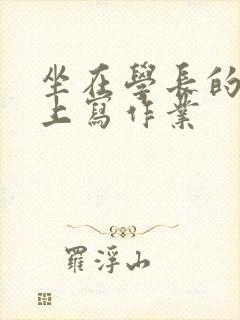 坐在學長的
上寫作業
羅浮山